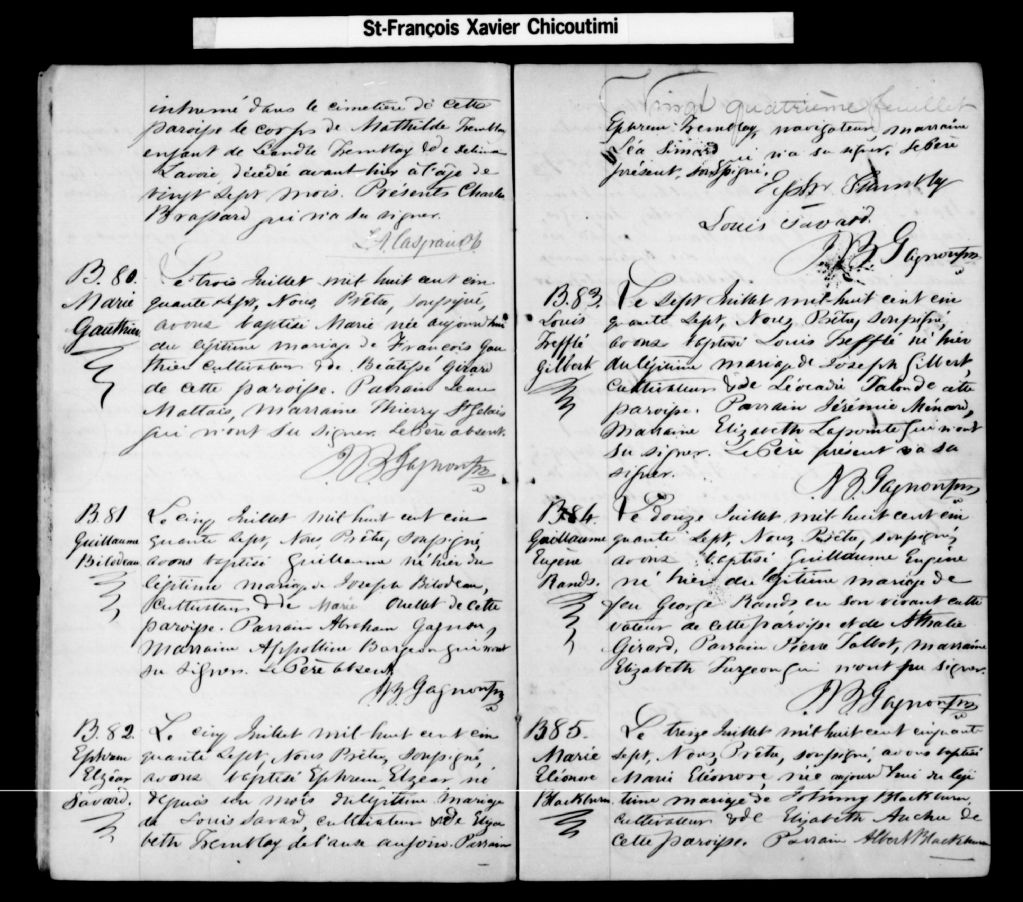 St-François Xavier Chicoutimi
inhumé dans le cimetière de cette
paroisse le corps de Mathilde Tremblay
enfant de Léandre Tremblay & de Delima
Lavoie décédée avant hier à l'âge de
vingt sept mois. Présents Charles
Brassard qui n'a su signer.
B. 80.
Marie
Gauthier
Le trois Juillet mil huit cent cin
quante sept, Nous, Prêtre, soussigné,
avons baptisé Marie née aujourd'hui
du légitime mariage de François Gau
thier cultivateur & de Girard
de cette paroisse. Parrain Jean
Mattais, Marraine Thierry St Gelais
qui n'ont su signer. Le Père absent.
J B Gagnon ptre
B. 81
Guillaume
Bilodeau
Le cinq Juillet mil huit cent cin
quante sept, Nous, Prêtre, soussigné,
avons baptisé Guillaume né hier du
légitime mariage de Joseph Bilodeau,
cultivateur & de Marie Ouellet de cette
paroisse. Parrain Abraham Gagnon,
Marraine Appolline qui n'ont
su signer. Le Père absent
J B Gagnon ptre
B. 82.
Ephrem
Elzéar
Savard.
Le cinq Juillet mil huit cent cin
quante sept, Nous, Prêtre, soussigné,
avons baptisé Ephrem Elzéar né
depuis un mois du légitime mariage
de Louis Savard, cultivateur & de Eliza
beth Tremblay de l'anse au foin. Parrain
Vingt quatrième feuillet
Ephrem Tremblay, navigateur, marraine
Léa Simard qui n'a su signer. Le père
présent soussigné.
Ephr. Tremblay
Louis Savard.
J B Gagnon ptre
B. 83.
Louis
Trefflé
Gilbert
Le sept Juillet mil huit cent cin
quante sept, Nous, Prêtre, soussigné,
avons baptisé Louis Trefflé né hier
du légitime mariage de Joseph Gilbert,
cultivateur & de Léocadie de cette
paroisse. Parrain Jérémie Ménard,
Marraine Elizabeth Lapointe qui n'ont
su signer. Le Père présent n'a su
signer.
J B Gagnon ptre
B. 84.
Guillaume
Eugène
Rands.
Le douze Juillet mil huit cent cin
quante sept, Nous, Prêtre, soussigné,
avons baptisé Guillaume Eugène
né hier du légitime mariage de
feu George Rands en son vivant culti
vateur de cette paroisse et de Athalie
Girard. Parrain Pierre Tallot, marraine
Elizabeth Turgeon qui n'ont pu signer.
J B Gagnon ptre
B 85.
Marie
Eléonore
Blackburn.
Le treize Juillet mil huit cent cinquante
sept, Nous, Prêtre, soussigné, avons baptisé
Marie Eléonore, née aujourd'hui du légi
time mariage de Johnny Blackburn,
cultivateur & de Elizabeth de
cette paroisse. Parrain Albert Blackburn